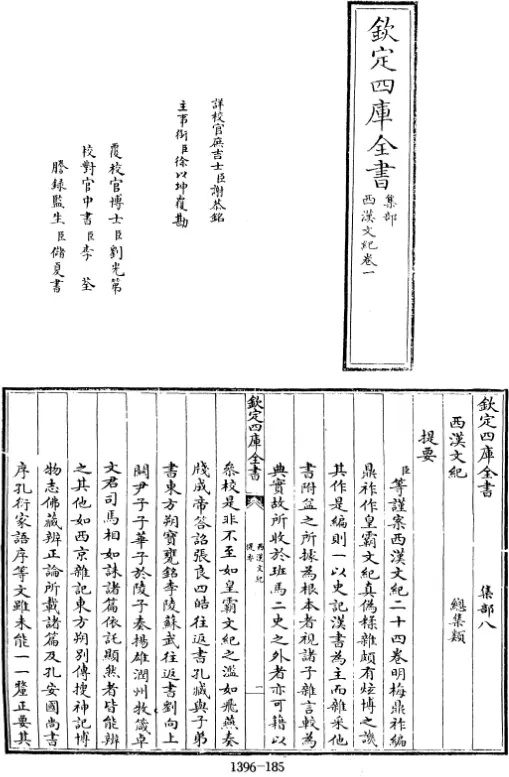 欽定四庫全書
集部
西漢文紀卷一
詳校官庶吉士臣謝恭銘
主事銜臣徐以坤覆勘
覆校官博士臣劉光第
校對官中書臣李荃
謄録監生臣儲夏書
欽定四庫全書
集部八
西漢文紀
總集類
提要
臣等謹案西漢文紀二十四卷明梅鼎祚編
鼎祚作皇霸文紀真偽糅雜頗有炫博之譏
其作是編則一以史記漢書為主而雜采他
書附益之所據為根本者視諸子雜言較為
典實故所收於班馬二史之外者亦可籍以
欽定四庫全書
西漢文紀
提要
一
叅校是非不至如皇霸文紀之濫如飛燕奏
牋成帝答詔張良四皓往返書孔臧與子弟
書東方朔寶甕銘李陵蘇武往返書劉向上
關尹子子華子於陵子奏揚雄潤州牧箴卓
文君司馬相如誄諸篇依託顯然者皆能辨
之其他如西京雜記東方朔别傳搜神記博
物志佛藏辨正論所載諸篇及孔安國尚書
序孔衍家語序等文雖未能一一釐正要其
1396-185